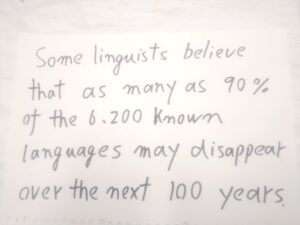 Some linguists believe
that as many as 90%
of the 6.200 known
languages may disappear
over the next 100 years.